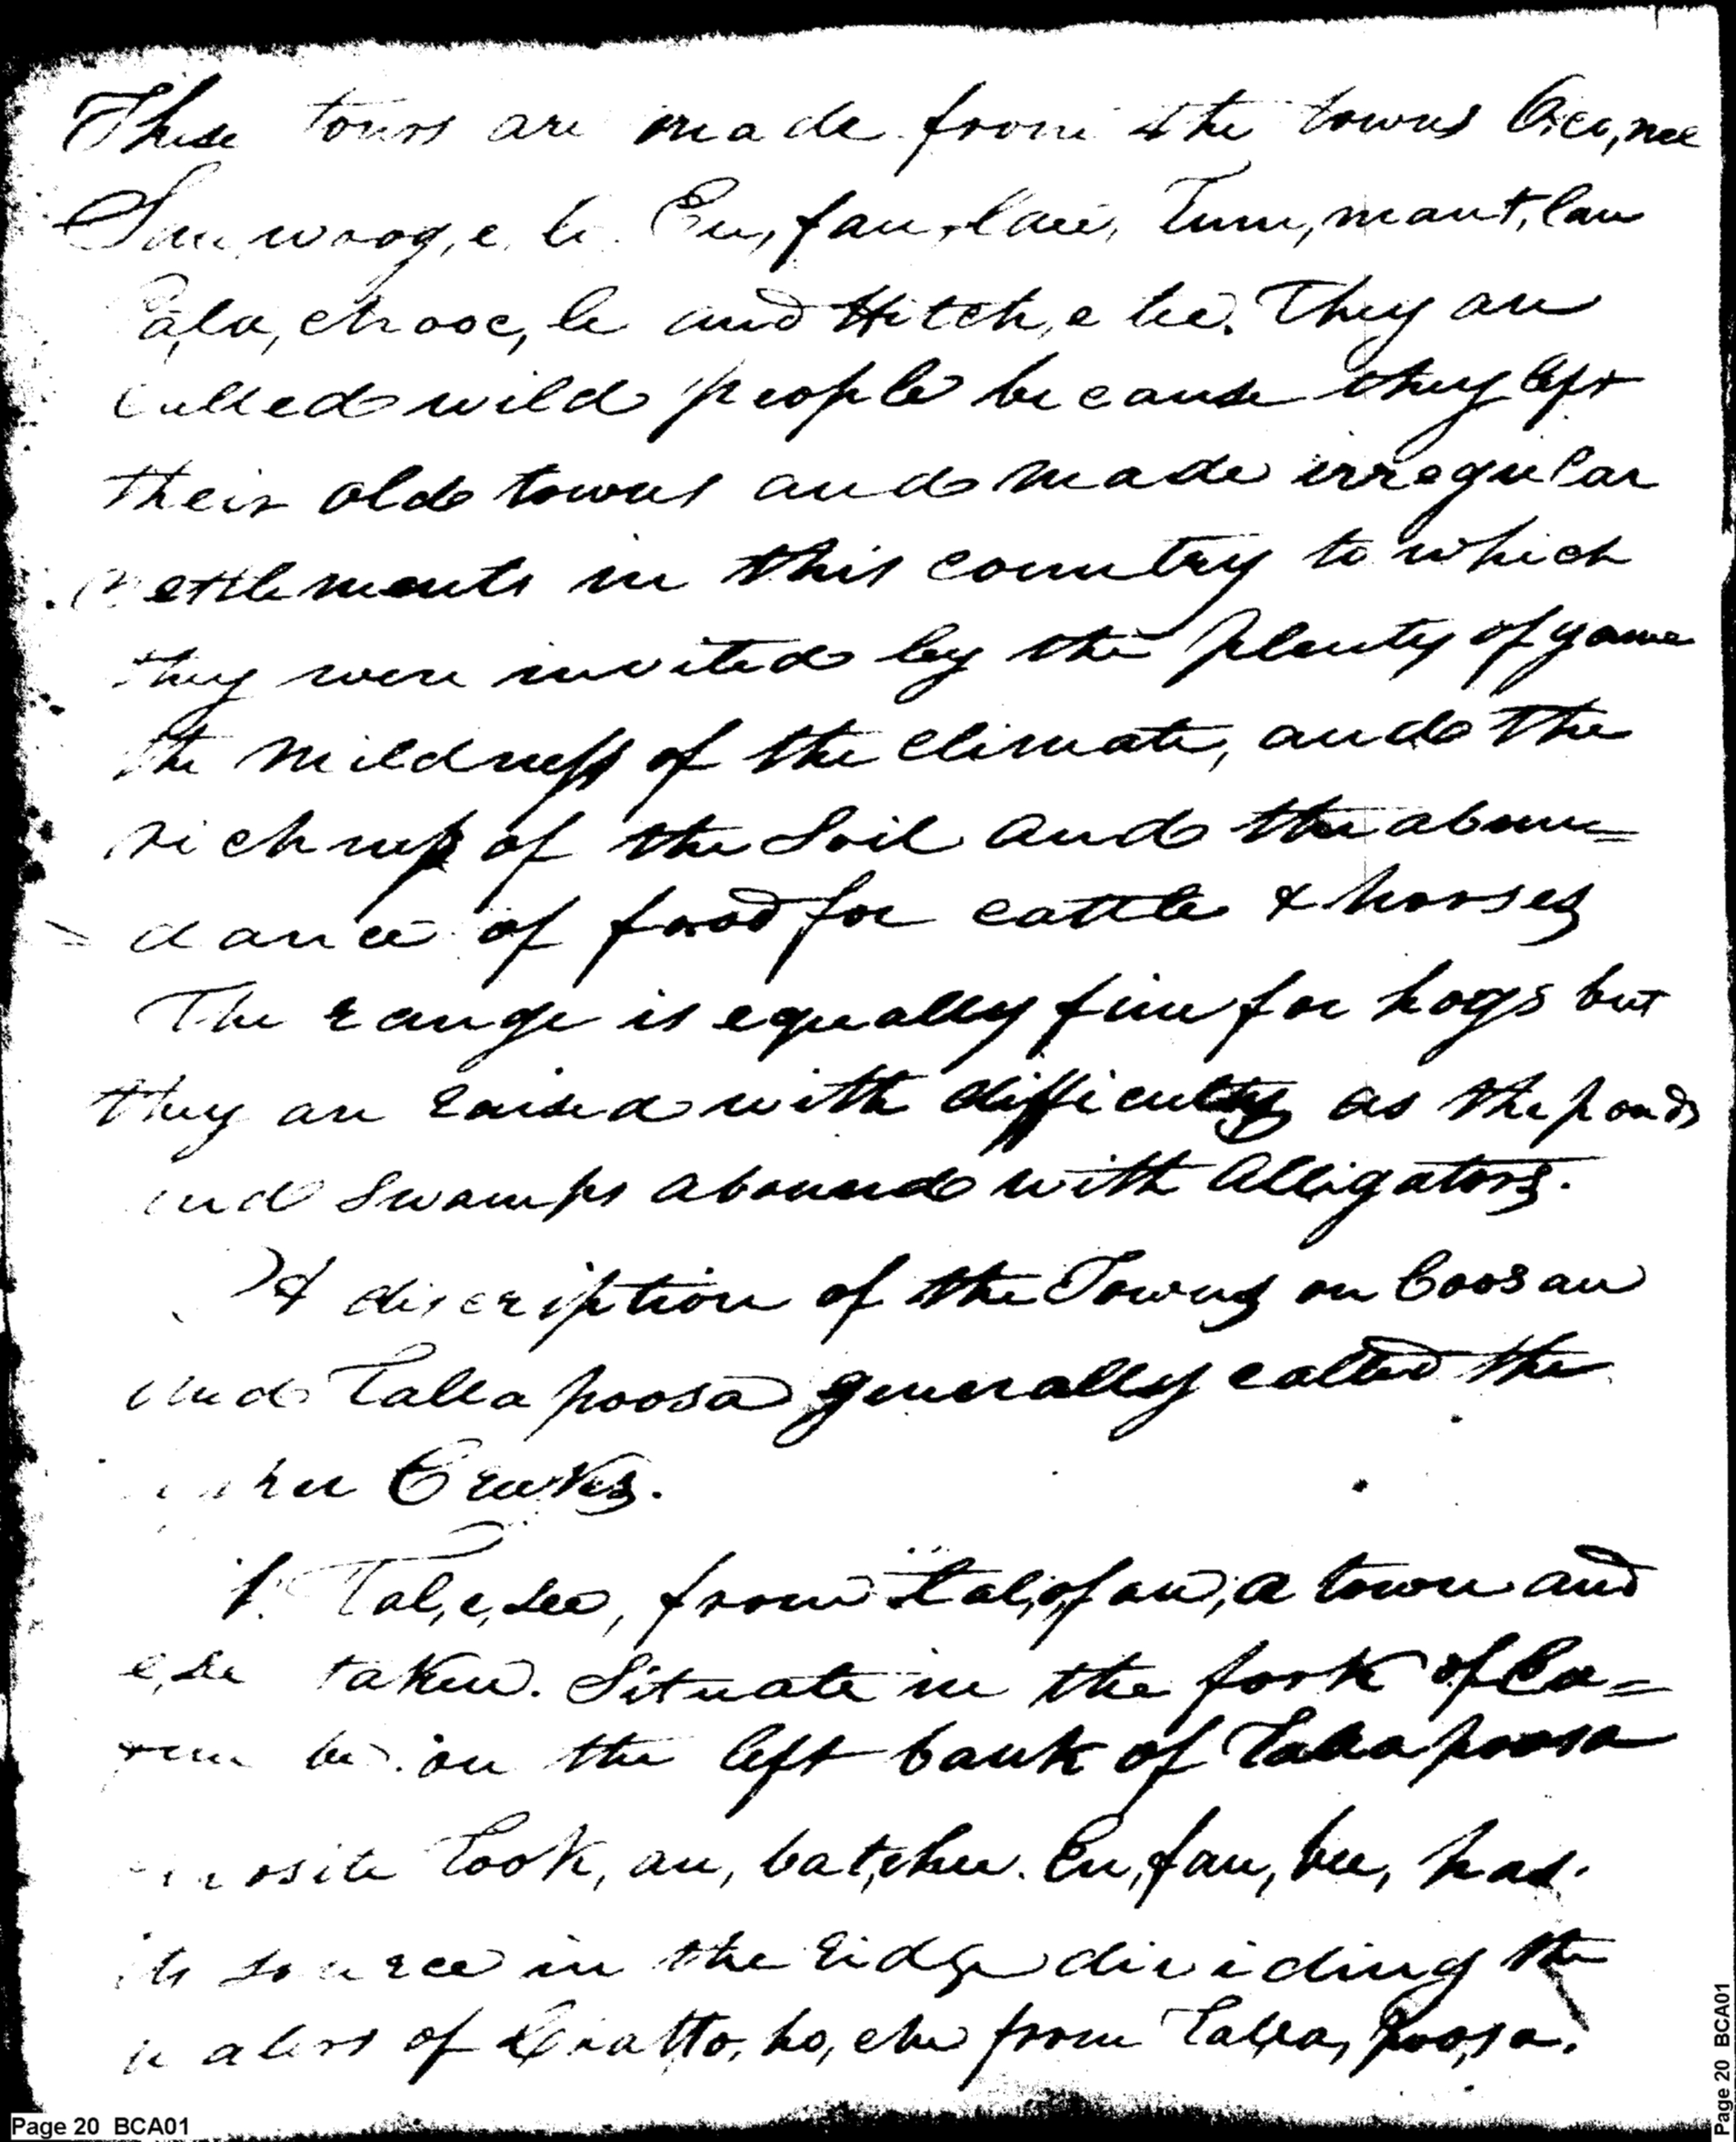 These tours are made from the towns O,co,nee
Sau woog,e, le. Eu, fau, lau, Tum, maut, lau
Pa,la, chooc, le and Hitch,e tee. They are
Called wild people because they left
their old towns and made irregular
settlements in this country to which
they were invited by the plenty of game
the mildness of the climate, and the
richness of the Soil and the abun=
= dance of food for cattle & horses
The range is equally fine for hogs but
they are raised with difficulty as the ponds
and swamps abound with Alligators.
A discription of the Towns on Coosau
and Tallapoosa generally called the
Creeks.
1. Tal,e,see, from tal,o,fau, a town and
e,se taken. Situate in the fork of Eu=
be on the left bank of Tallapoosa
Took, au, bat,chee. Eu,fau,bee, has
its source in the ridge dividing the
waters of Chatto, ho, che from Talla, poo,sa.
Page 20 BCA01
Page 20 BCA01